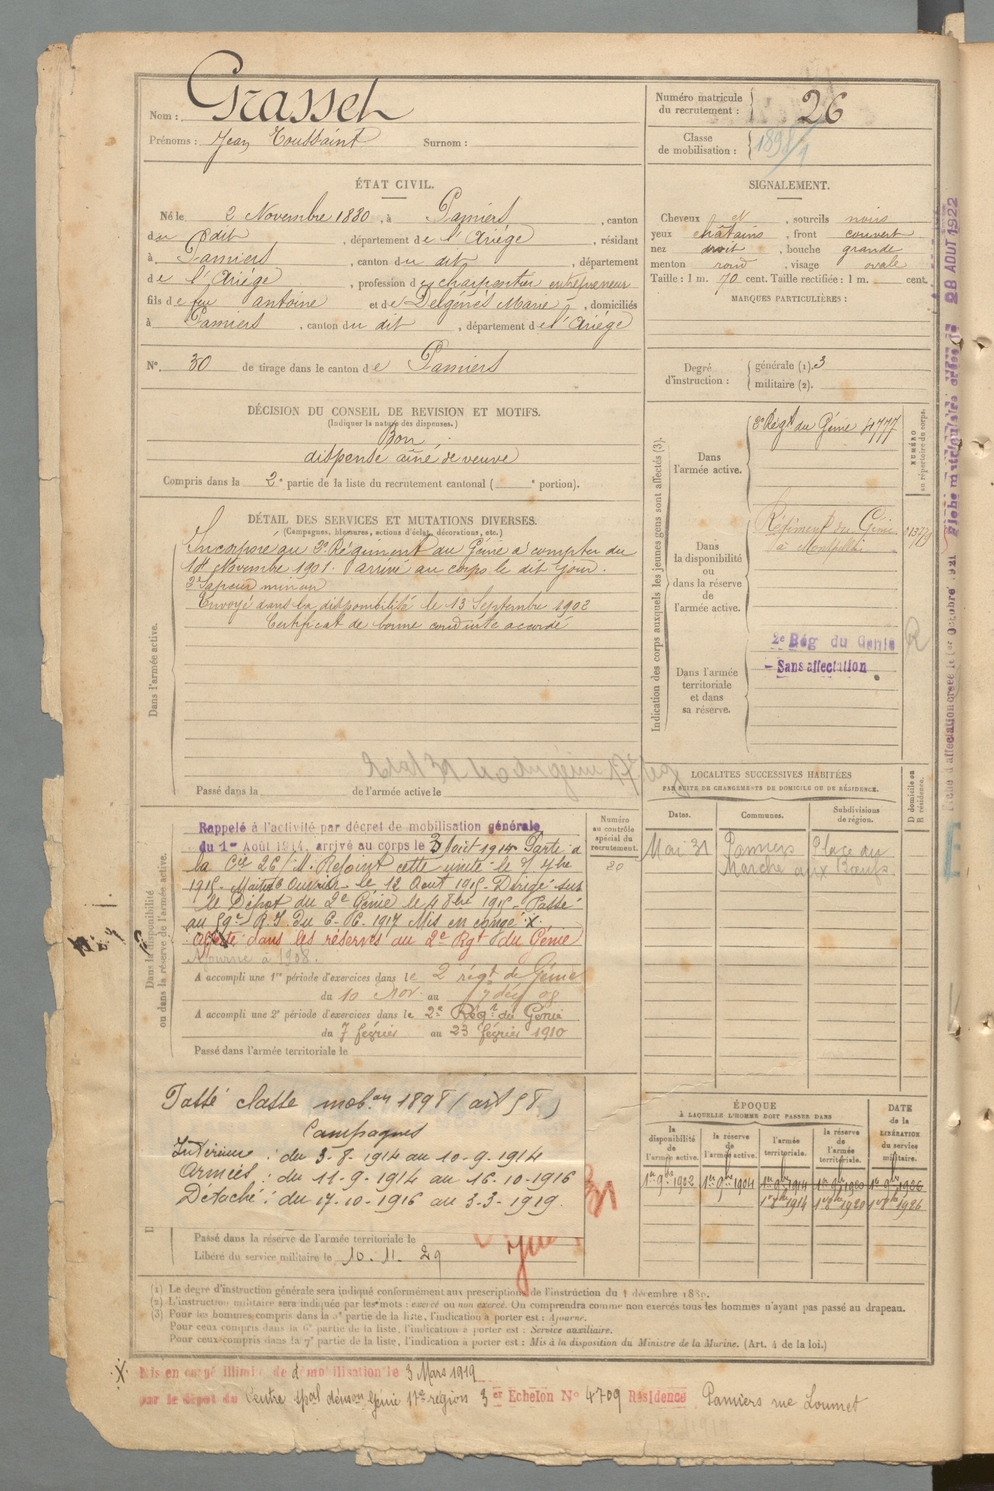 Nom : Grasset
Prénoms : Jean Toussaint Surnom :
Numéro matricule du recrutement : 26
Classe de mobilisation : 1898
ÉTAT CIVIL.
Né le 2 Novembre 1880, à Pamiers, canton
du dit, département de l'Ariége, résidant
à Pamiers, canton du dit, département
de l'Ariége, profession de charpentier entrepreneur
fils de feu antoine et de Delginés Marie, domiciliés
à Pamiers, canton du dit, département de l'Ariége
N°. 30 de tirage dans le canton de Pamiers
SIGNALEMENT.
Cheveux N, sourcils noirs
yeux chatains, front couvert
nez droit, bouche grande
menton rond, visage ovale
Taille : 1 m. 70 cent. Taille rectifiée : 1 m. cent.
MARQUES PARTICULIÈRES :
Degré d'instruction : générale (1). 3
militaire (2).
DÉCISION DU CONSEIL DE REVISION ET MOTIFS.
(Indiquer la nature des dispenses.)
Bon
dispense aîné de veuve
Compris dans la 2e partie de la liste du recrutement cantonal ( e portion).
DÉTAIL DES SERVICES ET MUTATIONS DIVERSES.
(Campagnes, blessures, actions d'éclat, décorations, etc.)
Dans l'armée active.
Incorporé au 3e Régiment du Génie à compter du
14 Novembre 1901. arrivé au corps le dit jour.
2e Sapeur mineur
Envoyé dans la disponibilité le 13 Septembre 1902
Certificat de bonne conduite accordé
Passé dans la de l'armée active le
Indication des corps auxquels les jeunes gens sont affectés (3).
NUMÉRO au répertoire du corps.
Dans l'armée active.
3e Régt du Génie 4777
Dans la disponibilité ou dans la réserve de l'armée active.
Régiment du Génie
à Montpellier
2e Rég du Genie
- Sans affectation
Dans l'armée territoriale et dans sa réserve.
LOCALITÉS SUCCESSIVES HABITÉES
PAR SUITE DE CHANGEMENTS DE DOMICILE OU DE RÉSIDENCE.
D domicile ou R résidence.
Dates. Communes. Subdivisions de région.
Mai 31 Pamiers Place du
Marché aux Bœufs.
Dans la disponibilité ou dans la réserve de l'armée active.
Numéro au contrôle spécial du recrutement.
20
Rappelé à l'activité par décret de mobilisation générale
du 1er Août 1914, arrivé au corps le 3 Août 1914 Parti à
la Cie 26/M. Rejoint cette unité le 7 7bre
1915. Maitre Ouvrier le 12 Aout 1915. Dirigé sur
le Dépot du 2e Génie le 4 8bre 1915. Passé
au 59e R.I du 6. 10. 1917 Mis en congé X.
Affecté dans les réserves au 2e Rgt du Génie
Ajourné à 1908.
A accompli une 1re période d'exercices dans le 2 régt de Génie
du 10 Nov. au 7 déc 08
A accompli une 2e période d'exercices dans le 2e Régt du Génie
du 7 février au 23 février 1910
Passé dans l'armée territoriale le
Passé classe mobon 1898 (art 58)
Campagnes
Intérieur : du 3-8-1914 au 10-9-1914
Armées : du 11-9-1914 au 16-10-1916
Détaché : du 17-10-1916 au 3-3-1919.
31
Passé dans la réserve de l'armée territoriale le
Libéré du service militaire le 10.11.29
ÉPOQUE
À LAQUELLE L'HOMME DOIT PASSER DANS
DATE de la LIBÉRATION du service militaire.
la disponibilité de l'armée active. la réserve de l'armée active. l'armée territoriale. la réserve de l'armée territoriale.
1er 9bre 1902 1er 9bre 1904 1er 9bre 1914 1er 9bre 1920 1er 9bre 1926
1er 8bre 1914 1er 8bre 1920 1er 8bre 1926
(1) Le degré d'instruction générale sera indiqué conformément aux prescriptions de l'instruction du 4 décembre 1889.
(2) L'instruction militaire sera indiquée par les mots : exercé ou non exercé. On comprendra comme non exercés tous les hommes n'ayant pas passé au drapeau.
(3) Pour les hommes compris dans la 5e partie de la liste, l'indication à porter est : Ajourné.
Pour ceux compris dans la 6e partie de la liste, l'indication à porter est : Service auxiliaire.
Pour ceux compris dans la 7e partie de la liste, l'indication à porter est : Mis à la disposition du Ministre de la Marine. (Art. 4 de la loi.)
X. Mis en congé illimité de démobilisation le 3 Mars 1919
par le dépot du Centre spal démon Génie 17e région 3e Echelon N° 4709 Résidence Pamiers rue Loumet
28 AOUT 1922